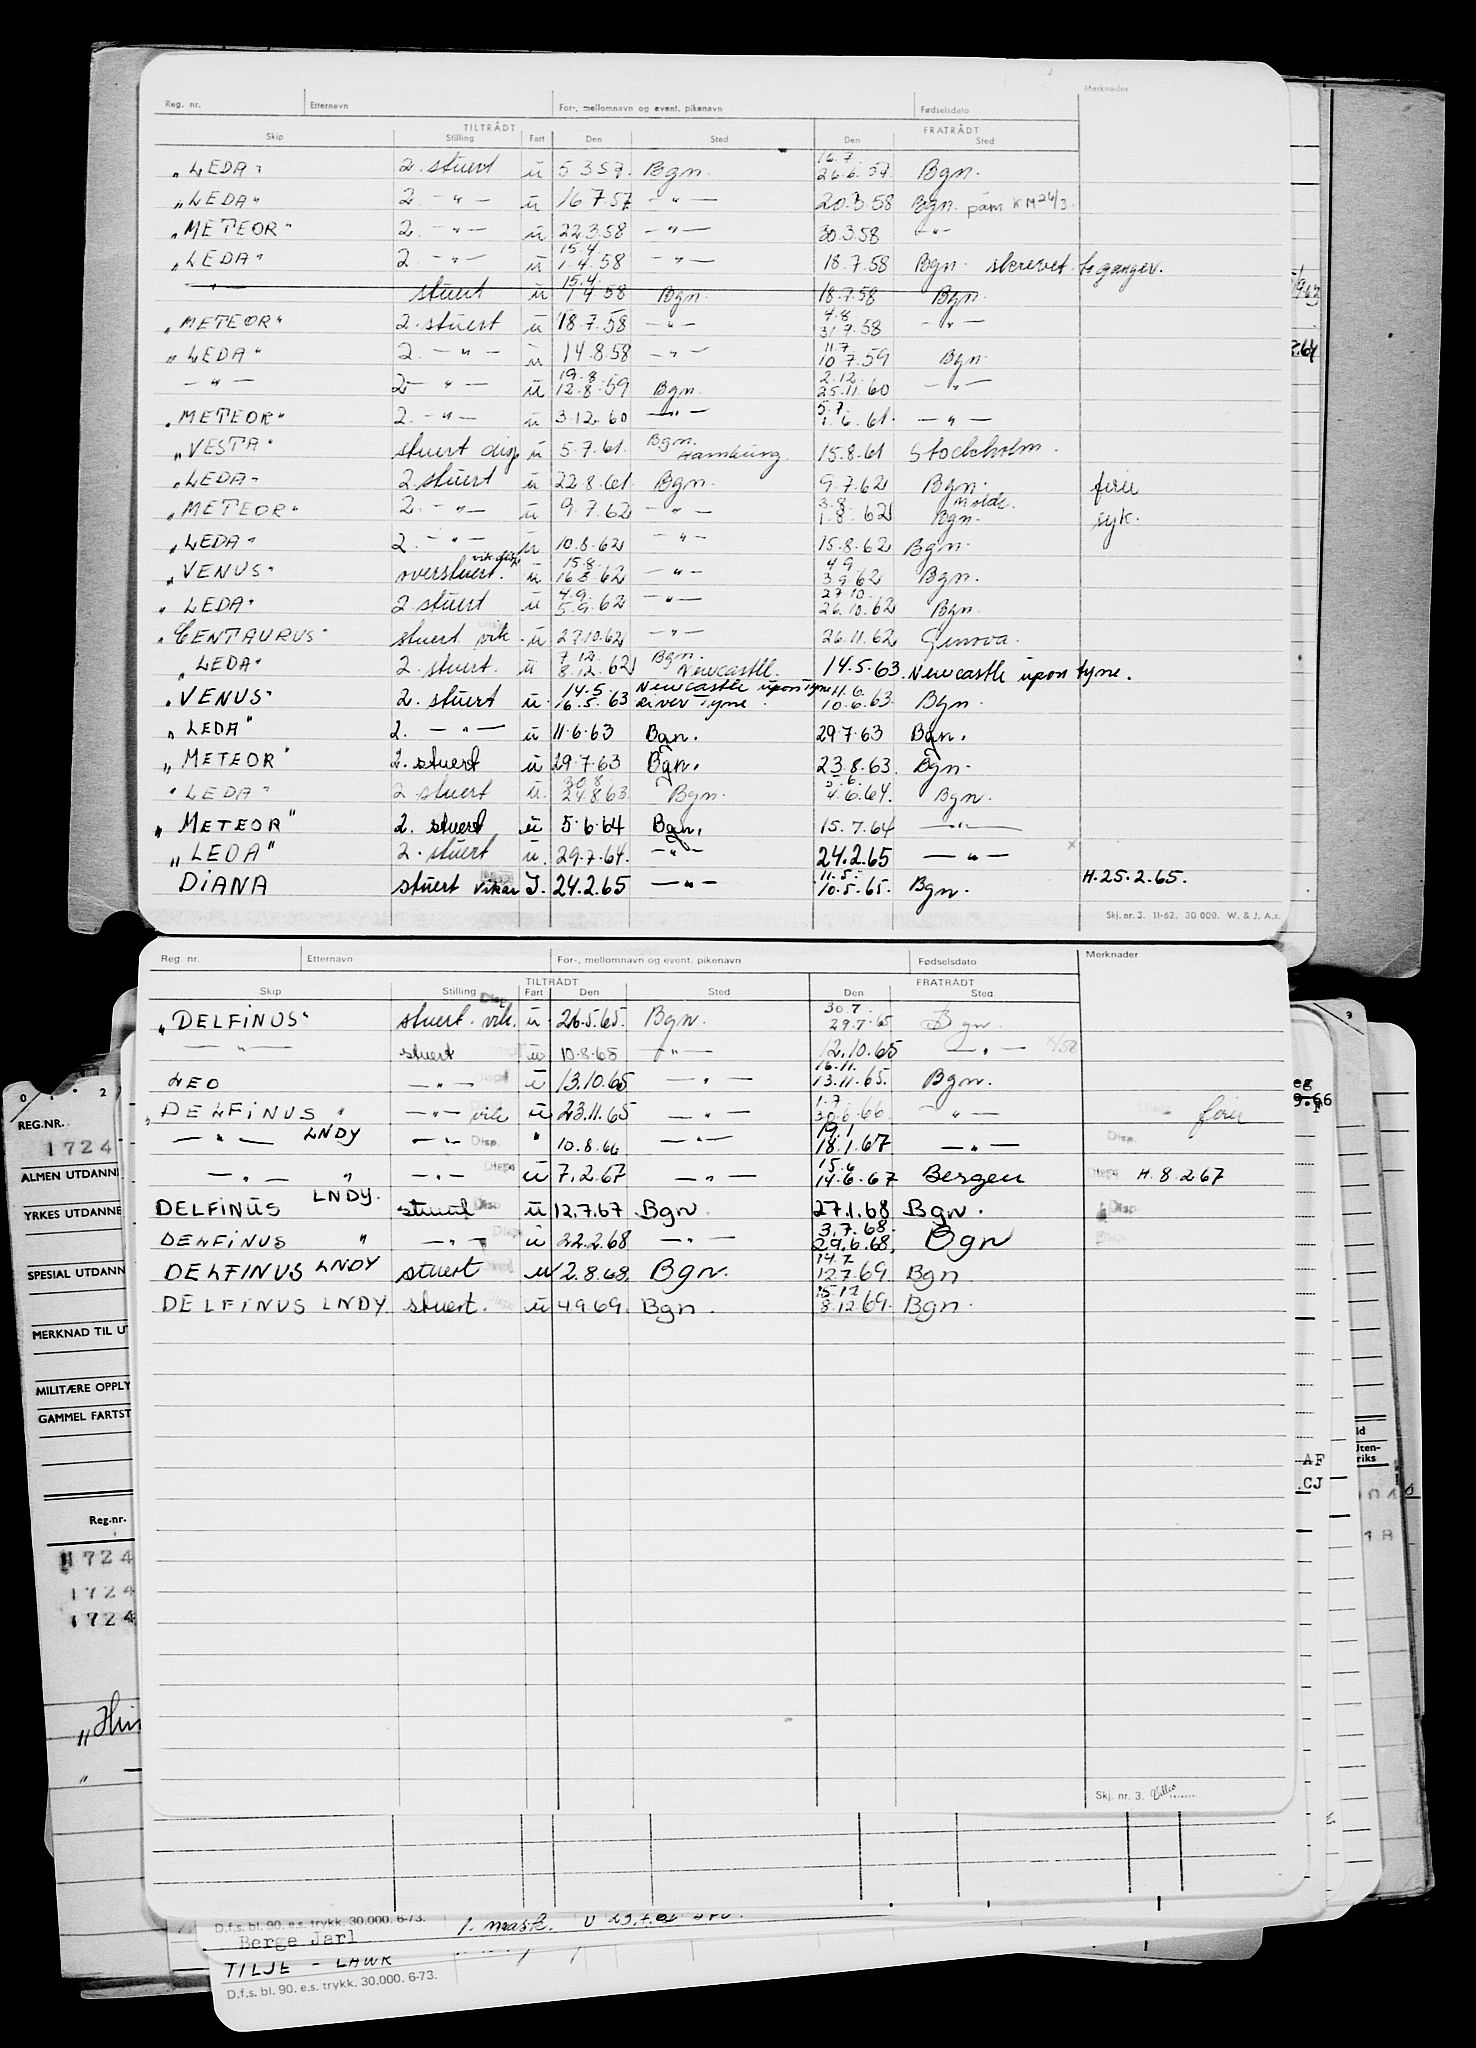 Reg. nr. Etternavn For-, mellomnavn og event. pikenavn Fødselsdato Merknader
TILTRÅDT FRATRÅDT
Skip Stilling Fart Den Sted Den Sted
16.7
"LEDA" 2. stuert u 5.3.57. Bgn. 26.6.57 Bgn.
"LEDA" 2. — " — u 16.7.57 — " — 20.3.58 Bgn. påm KM 26/3.
"METEOR" 2. — " — u 22.3.58 — " — 30.3.58 — " —
15.4
"LEDA" 2. — " — u 1.4.58 — " — 18.7.58 Bgn. skrevet to ganger.
15.4
— " — stuert u 1.4.58 Bgn. 18.7.58 Bgn.
4.8.
"METEOR" 2. stuert u 18.7.58 — " — 31.7.58 — " —
11.7
"LEDA" 2. — " — u 14.8.58 — " — 10.7.59 Bgn.
19.8. 2.12.
— " — 2 — " — u 12.8.59 Bgn. 25.11.60 — " —
5.7.
"METEOR" 2. — " — u 3.12.60 — " — 1.6.61. — " —
"VESTA" stuert disp u 5.7.61. Bgn. Hamburg. 15.8.61 Stockholm.
"LEDA" 2. stuert u 22.8.61. Bgn. 9.7.62 Bgn. ferie
3.8. Molde.
"METEOR" 2. — " — u 9.7.62 — " — 1.8.62 Bgn. syk.
"LEDA" 2. — " — u 10.8.62 — " — 15.8.62 Bgn.
vik. disp 15.8. 4.9
"VENUS" overstuert. u 16.8.62 — " — 3.9.62 Bgn.
4.9. 27.10.
"LEDA" 2. stuert u 5.9.62 — " — 26.10.62 Bgn.
"CENTAURUS" stuert vik. u 27.10.62 — " — 26.11.62 Genova.
7.12. Bgn.
"LEDA" 2. stuert. u 8.12.62 Newcastle. 14.5.63. Newcastle upon tyne.
14.5 Newcastle upon Tyne 11.6.
"VENUS" 2. stuert u. 16.5.63 River Tyne. 10.6.63. Bgn.
"LEDA" 2. — " — u 11.6.63 Bgn. 29.7.63 Bgn.
"METEOR" 2. stuert u 29.7.63 Bgn. 23.8.63. Bgn.
30.8. 5.6.
"LEDA" 2 stuert u. 24.8.63 Bgn. 4.6.64. Bgn.
"METEOR" 2. stuert u 5.6.64 Bgn. 15.7.64 — " —
"LEDA" 2. stuert u. 29.7.64. — " — 24.2.65 — " — x
11.5.
DIANA stuert vikar I. 24.2.65 — " — 10.5.65. Bgn. H.25.2.65.
Skj. nr. 3. 11-62. 30 000. W. & J. A.s.
Reg. nr. Etternavn For-, mellomnavn og event. pikenavn Fødselsdato Merknader
TILTRÅDT FRATRÅDT
Skip Stilling Fart Den Sted Den Sted
Disp. 30.7.
"DELFINUS" stuert. vik. u. 26.5.65. Bgn. 29.7.65 Bgn.
— " — stuert u 10.8.65 — " — 12.10.65 — " —
16.11.
LEO — " — u 13.10.65 — " — 13.11.65. Bgn.
1.7.
"DELFINUS" — " — vik u 23.11.65 — " — 30.6.66 — " — ferie
19.1
— " — LNDY — " — Disp. " 10.8.66 — " — 18.1.67 — " — Disp.
15.6
— " — " — " — Disp. u 7.2.67 — " — 14.6.67 Bergen Disp. H.8.2.67
DELFINUS LNDY. stuert Disp. u 12.7.67 Bgn 27.1.68 Bgn. Disp.
3.7.68.
DELFINUS " — " — Disp. u 22.2.68 — " — 29.6.68. Bgn Disp.
14.7
DELFINUS LNDY stuert u 2.8.68. Bgn. 12.7.69 Bgn
15.12
DELFINUS LNDY. stuert. u 4.9.69. Bgn. 8.12.69. Bgn.
Skj. nr. 3.
REG.NR.
1724
ALMEN UTDANN
YRKES UTDANNE
SPESIAL UTDANN
MERKNAD TIL U
MILITÆRE OPPLY
GAMMEL FARTST
Reg.-nr.
1724
1724
1724
AF
.CJ
D.f.s. bl. 90. e.s. trykk. 30.000. 6-73.
Berge Jarl 1. mask.
TILJE - LAWR
D.f.s. bl. 90. e.s. trykk. 30.000. 6-73.